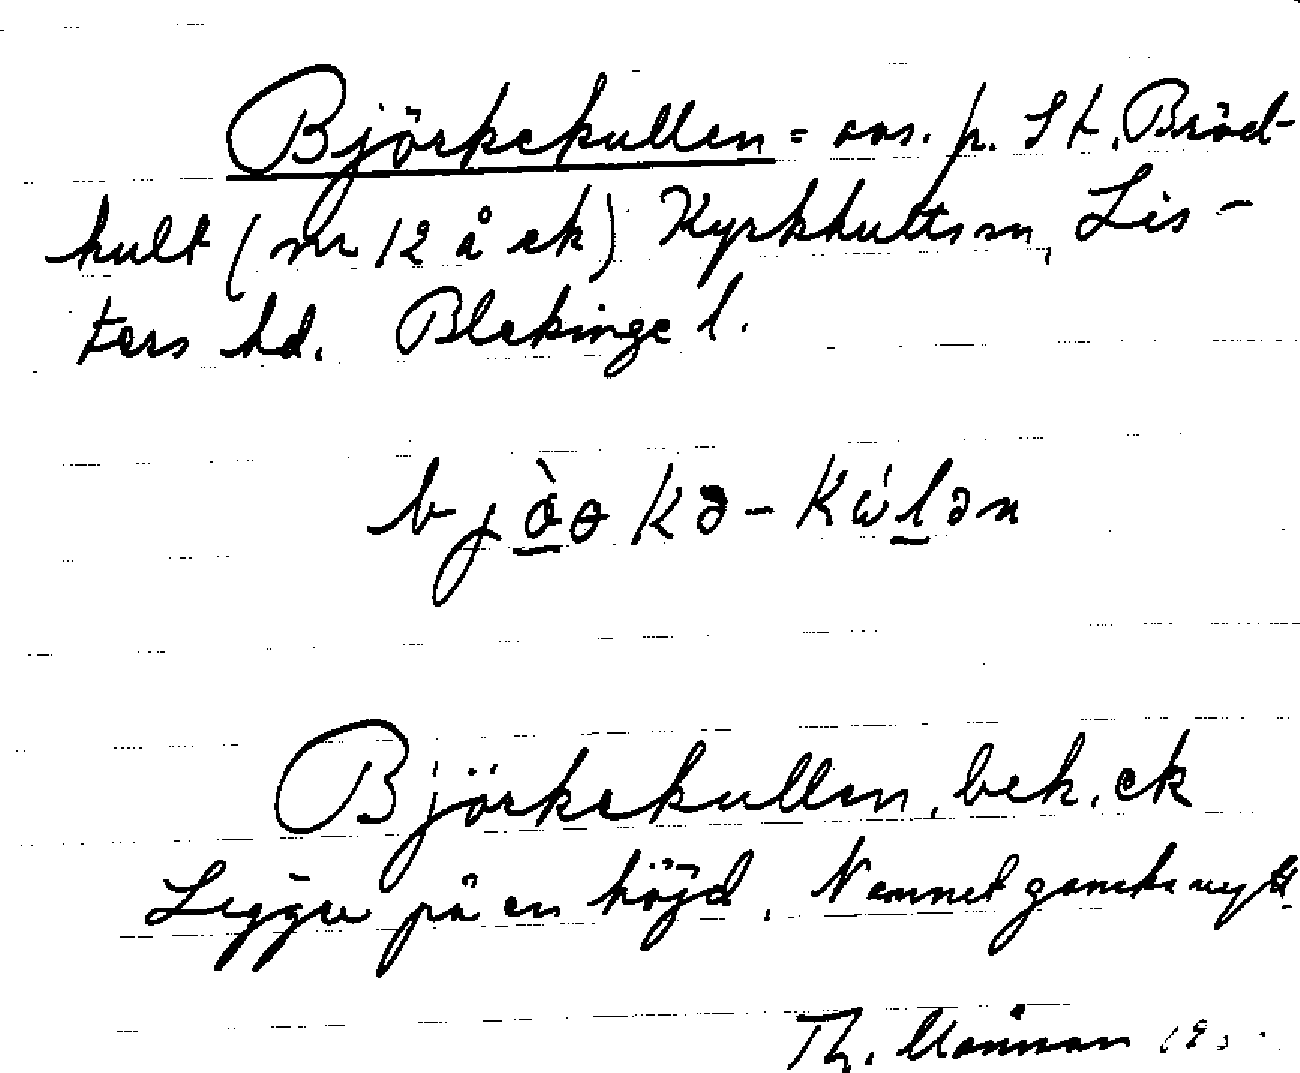 Björkekullen = avs. p. St. Bröd-
hult (nr 12 å ek) Kyrkhults sn, Lis-
ters hd. Blekinge l.
bjò̱ɵkə-kẃḻən
Björkekullen, beb. ek
Ligger på en höjd. Namnet ganska nytt
Th.